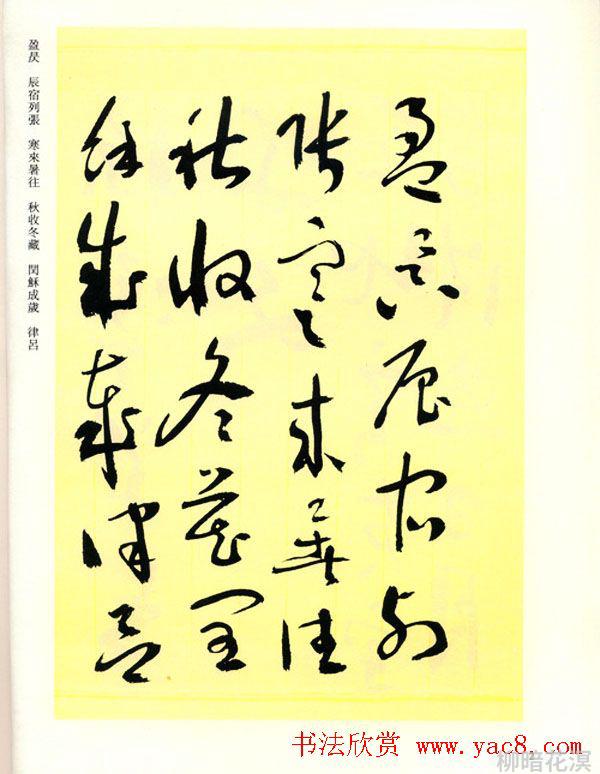 盈昃辰宿列
張寒來暑往
秋收冬藏閏
餘成歲律呂
盈昃 辰宿列張 寒來暑往 秋收冬藏 閏穌成歲 律呂
书法欣赏 www.yac8.com
柳暗花溟